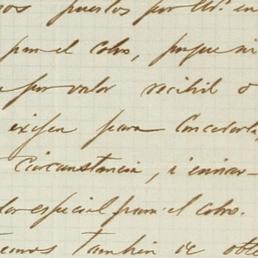 puestos por Ud. en
para el cobro, porque ni
por valor recibil o
exijen para concederla
circunstancia, i enviar-
especial para el cobro.
tambien de obte